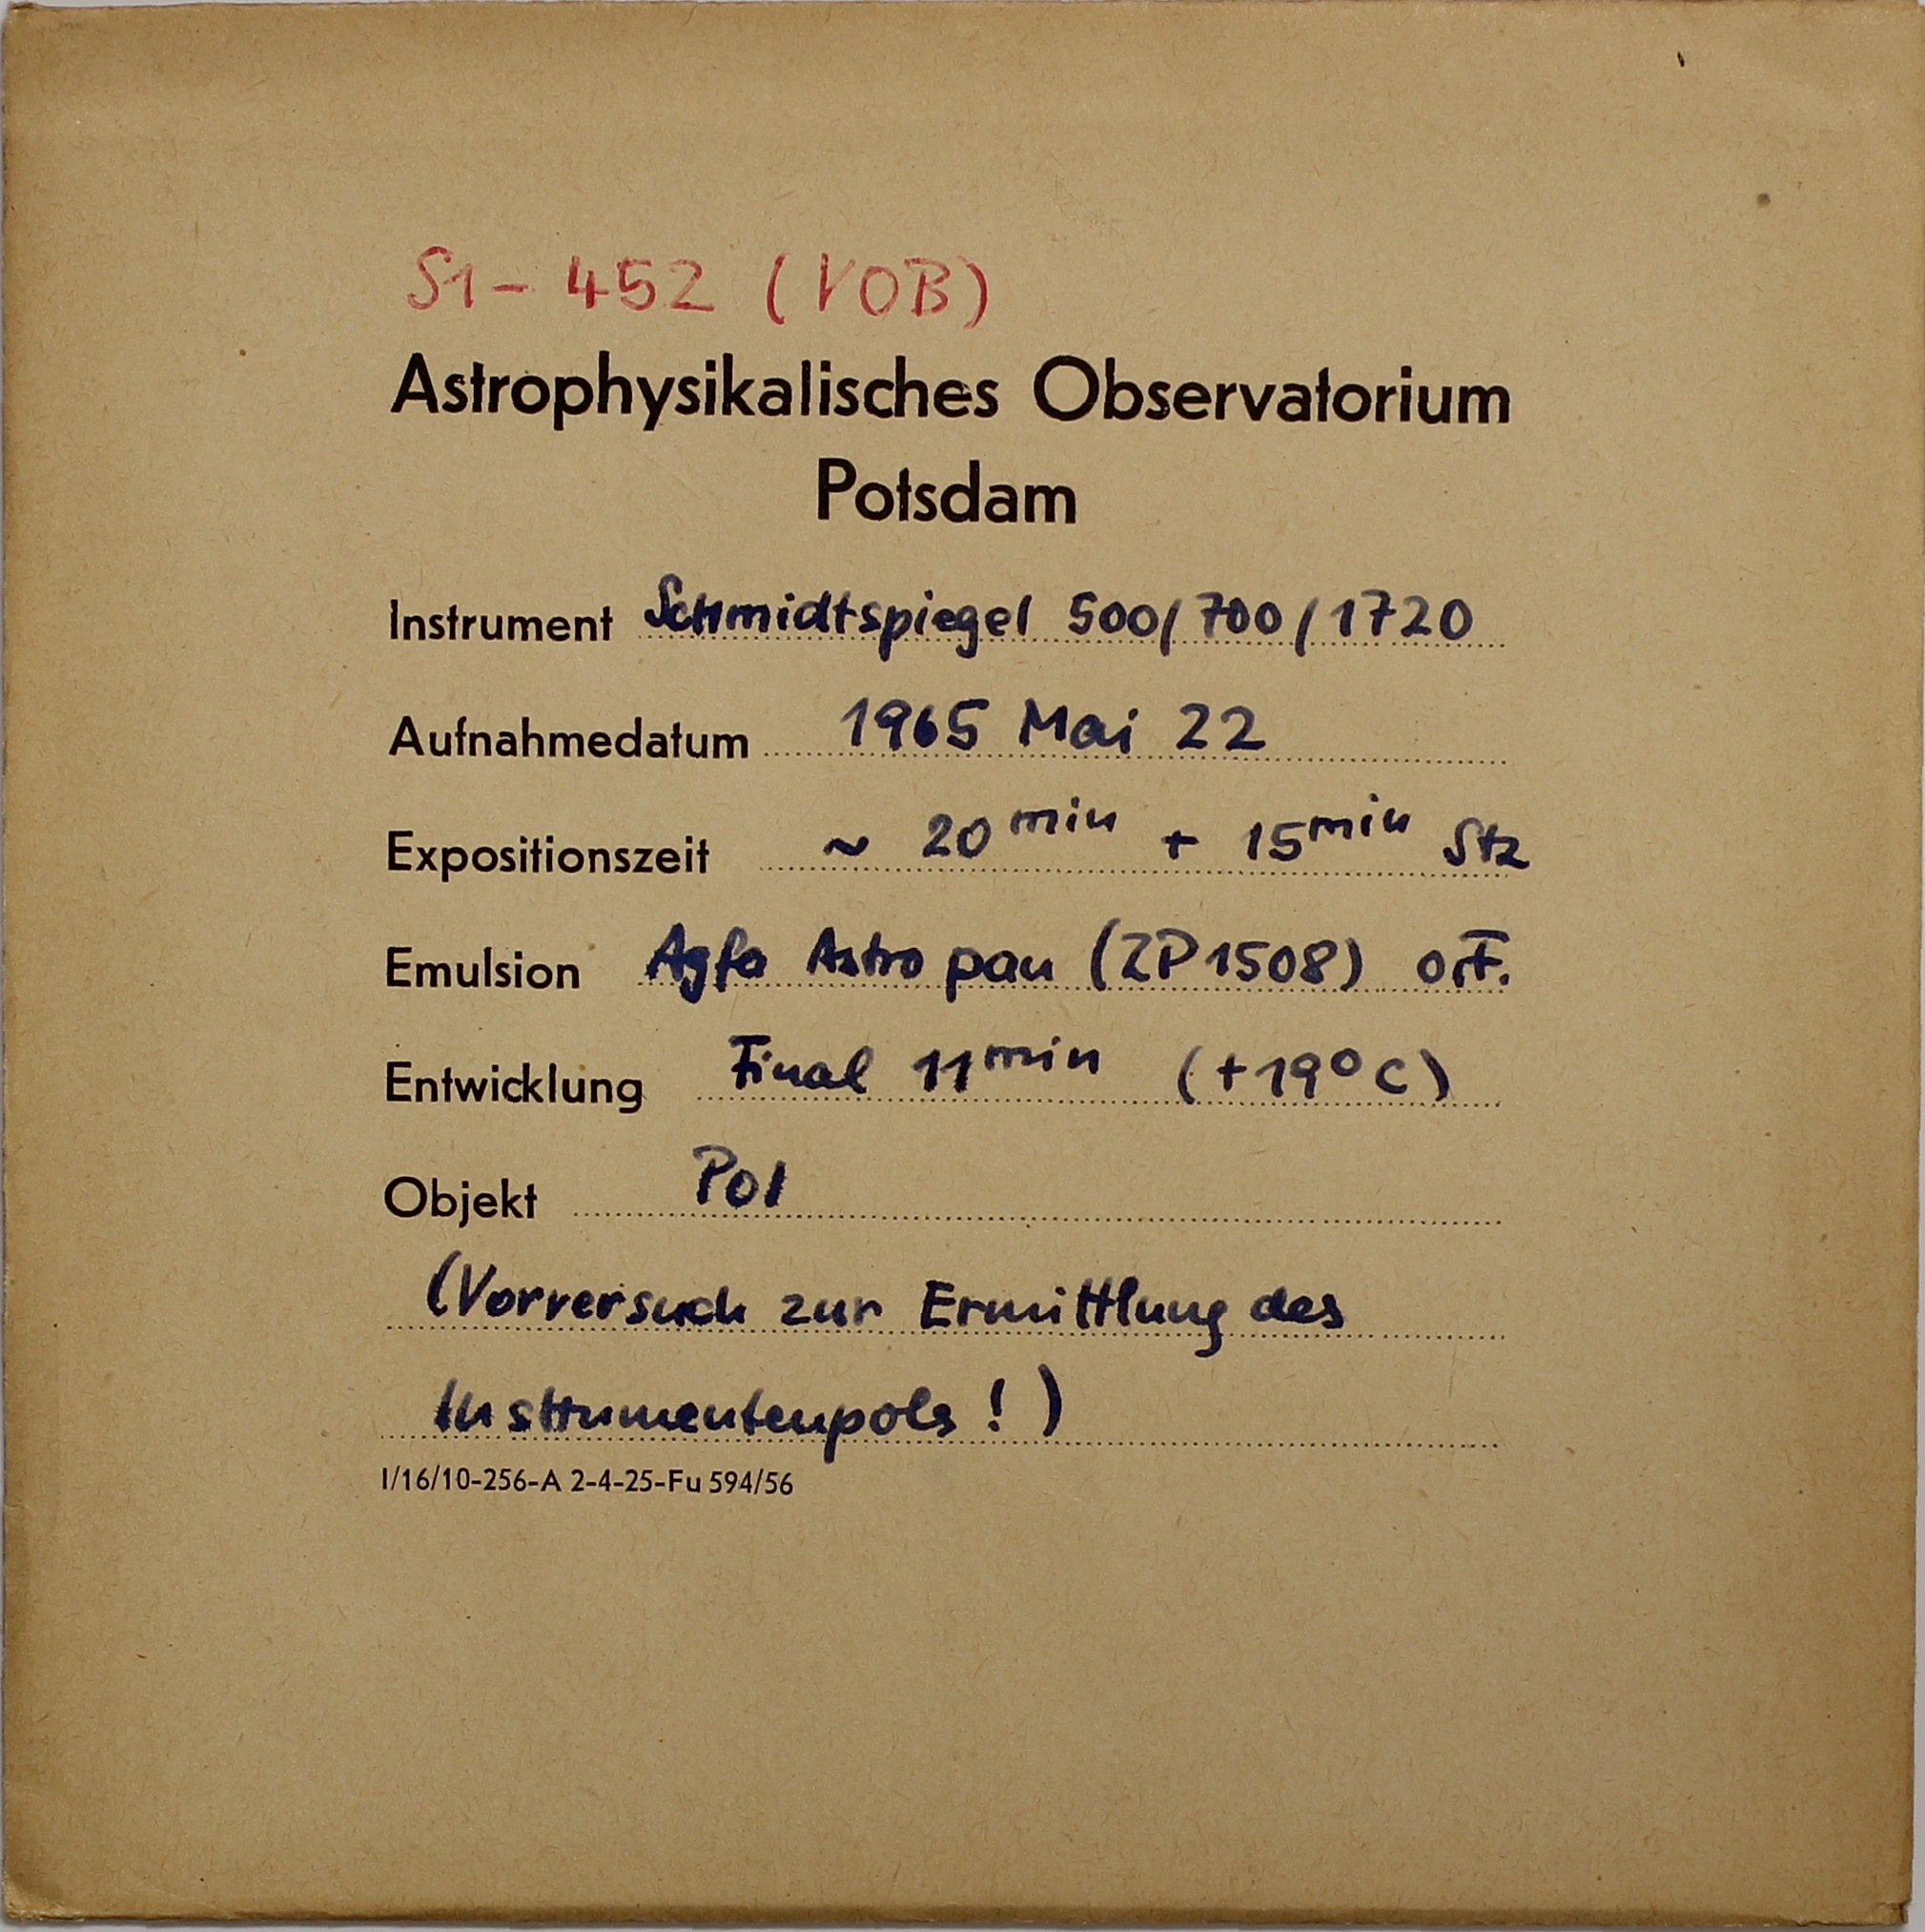 S1 - 452 (VOB)
Astrophysikalisches Observatorium
Potsdam
Instrument Schmidtspiegel 500/700/1720
Aufnahmedatum 1965 Mai 22
Expositionszeit ~ 20 min + 15 min Stz
Emulsion Agfa Astro pan (ZP1508) o.F.
Entwicklung Final 11 min (+19° C)
Objekt Pol
(Vorversuch zur Ermittlung des
Instrumentenpols!)
I/16/10-256-A 2-4-25-Fu 594/56